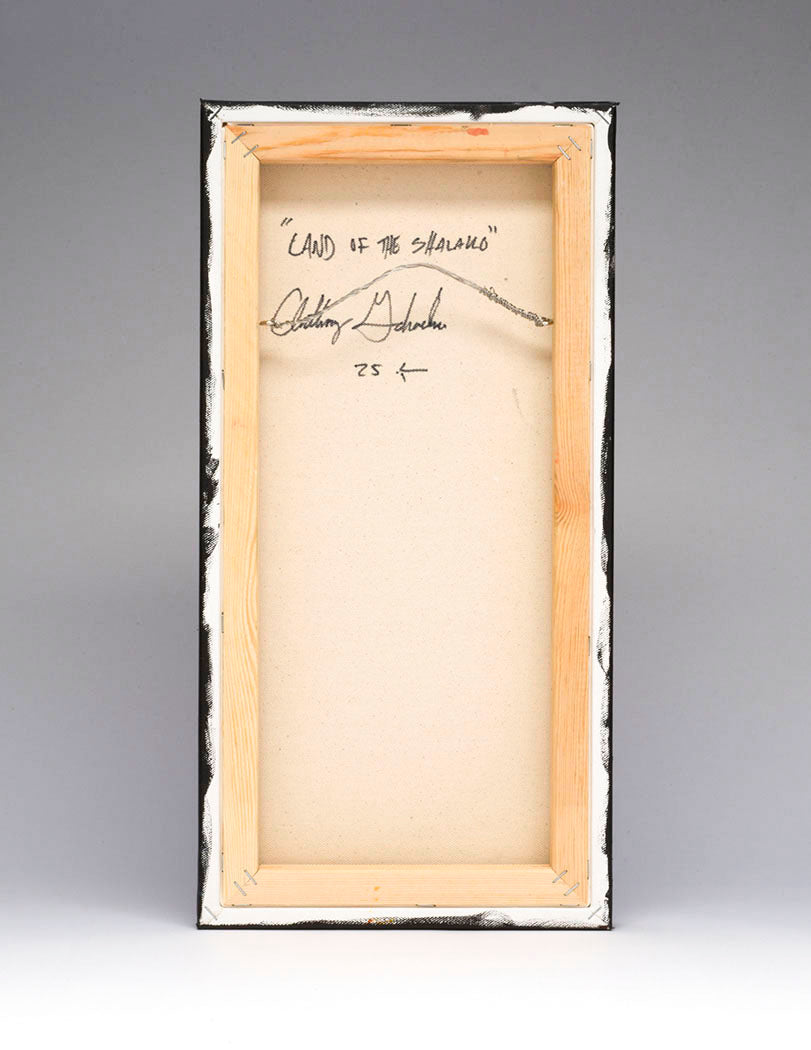 "LAND OF THE SHALAKO"
Anthony
25 ←